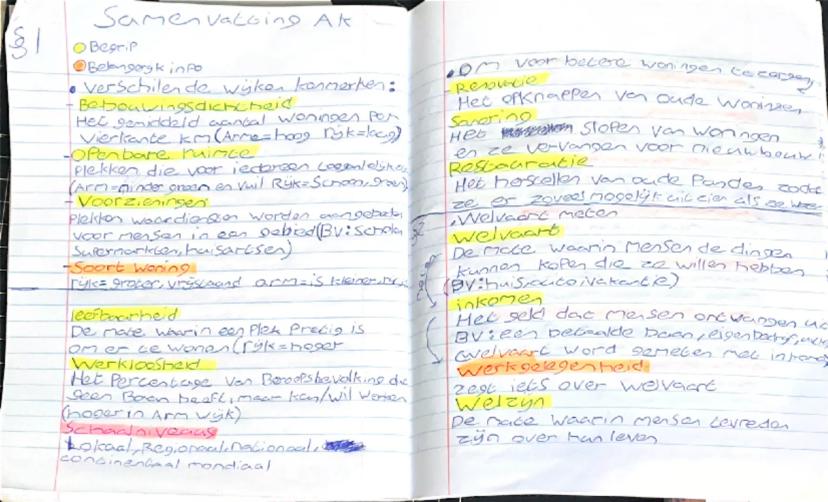 Samenvatting Ak
§1
Begrip
Belangrijk info
• Verschilende wijken kenmerken:
- Bebouwingsdichtheid
Het gemiddeld aantal woningen per
vierkante km (Arm=hoog Rijk=laag)
- Openbare ruimte
Plekken die voor iedereen toegankelijk
(Arm=minder groen en vuil Rijk=Schoon, groen)
- Voorzieningen
Plekken waar diensten worden aangeboden
voor mensen in een gebied (BV: scholen
Supermarkten, huisartsen)
- Soort woning
rijk= groter, vrijstaand arm=is kleiner
leefbaarheid
De mate waarin een Plek Prettig is
om er te wonen (rijk=hoger
Werkloosheid
Het Percentage van Beroepsbevolking die
geen Baan heeft, maar kan/wil werken
(hoger in Arm wijk)
Schaalniveaus
Lokaal, Regionaal, nationaal,
continentaal mondiaal
• Om voor betere woningen te zorgen
Renovatie
Het opknappen van oude woningen
Sanering
Het slopen van woningen
en ze vervangen voor nieuwbouw
Restauratie
Het herstellen van oude Panden zodat
ze er zoveel mogelijk uit zien als ze
§2
• Welvaart meten
Welvaart
De mate waarin mensen de dingen
kunnen kopen die ze willen hebben
(BV: huis, auto, vakantie)
inkomen
Het geld dat mensen ontvangen uit
BV: een betaalde baan, eigen bedrijf,
(welvaart word gemeten met
Werkgelegenheid
zegt iets over welvaart
Welzijn
De mate waarin mensen tevreden
zijn over hun leven